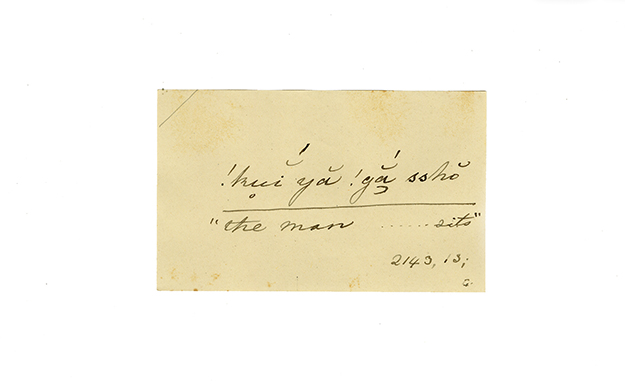 !kụĭ́ yă !gắ̮ sshŏ
"the man ...... sits"
2143, 13;